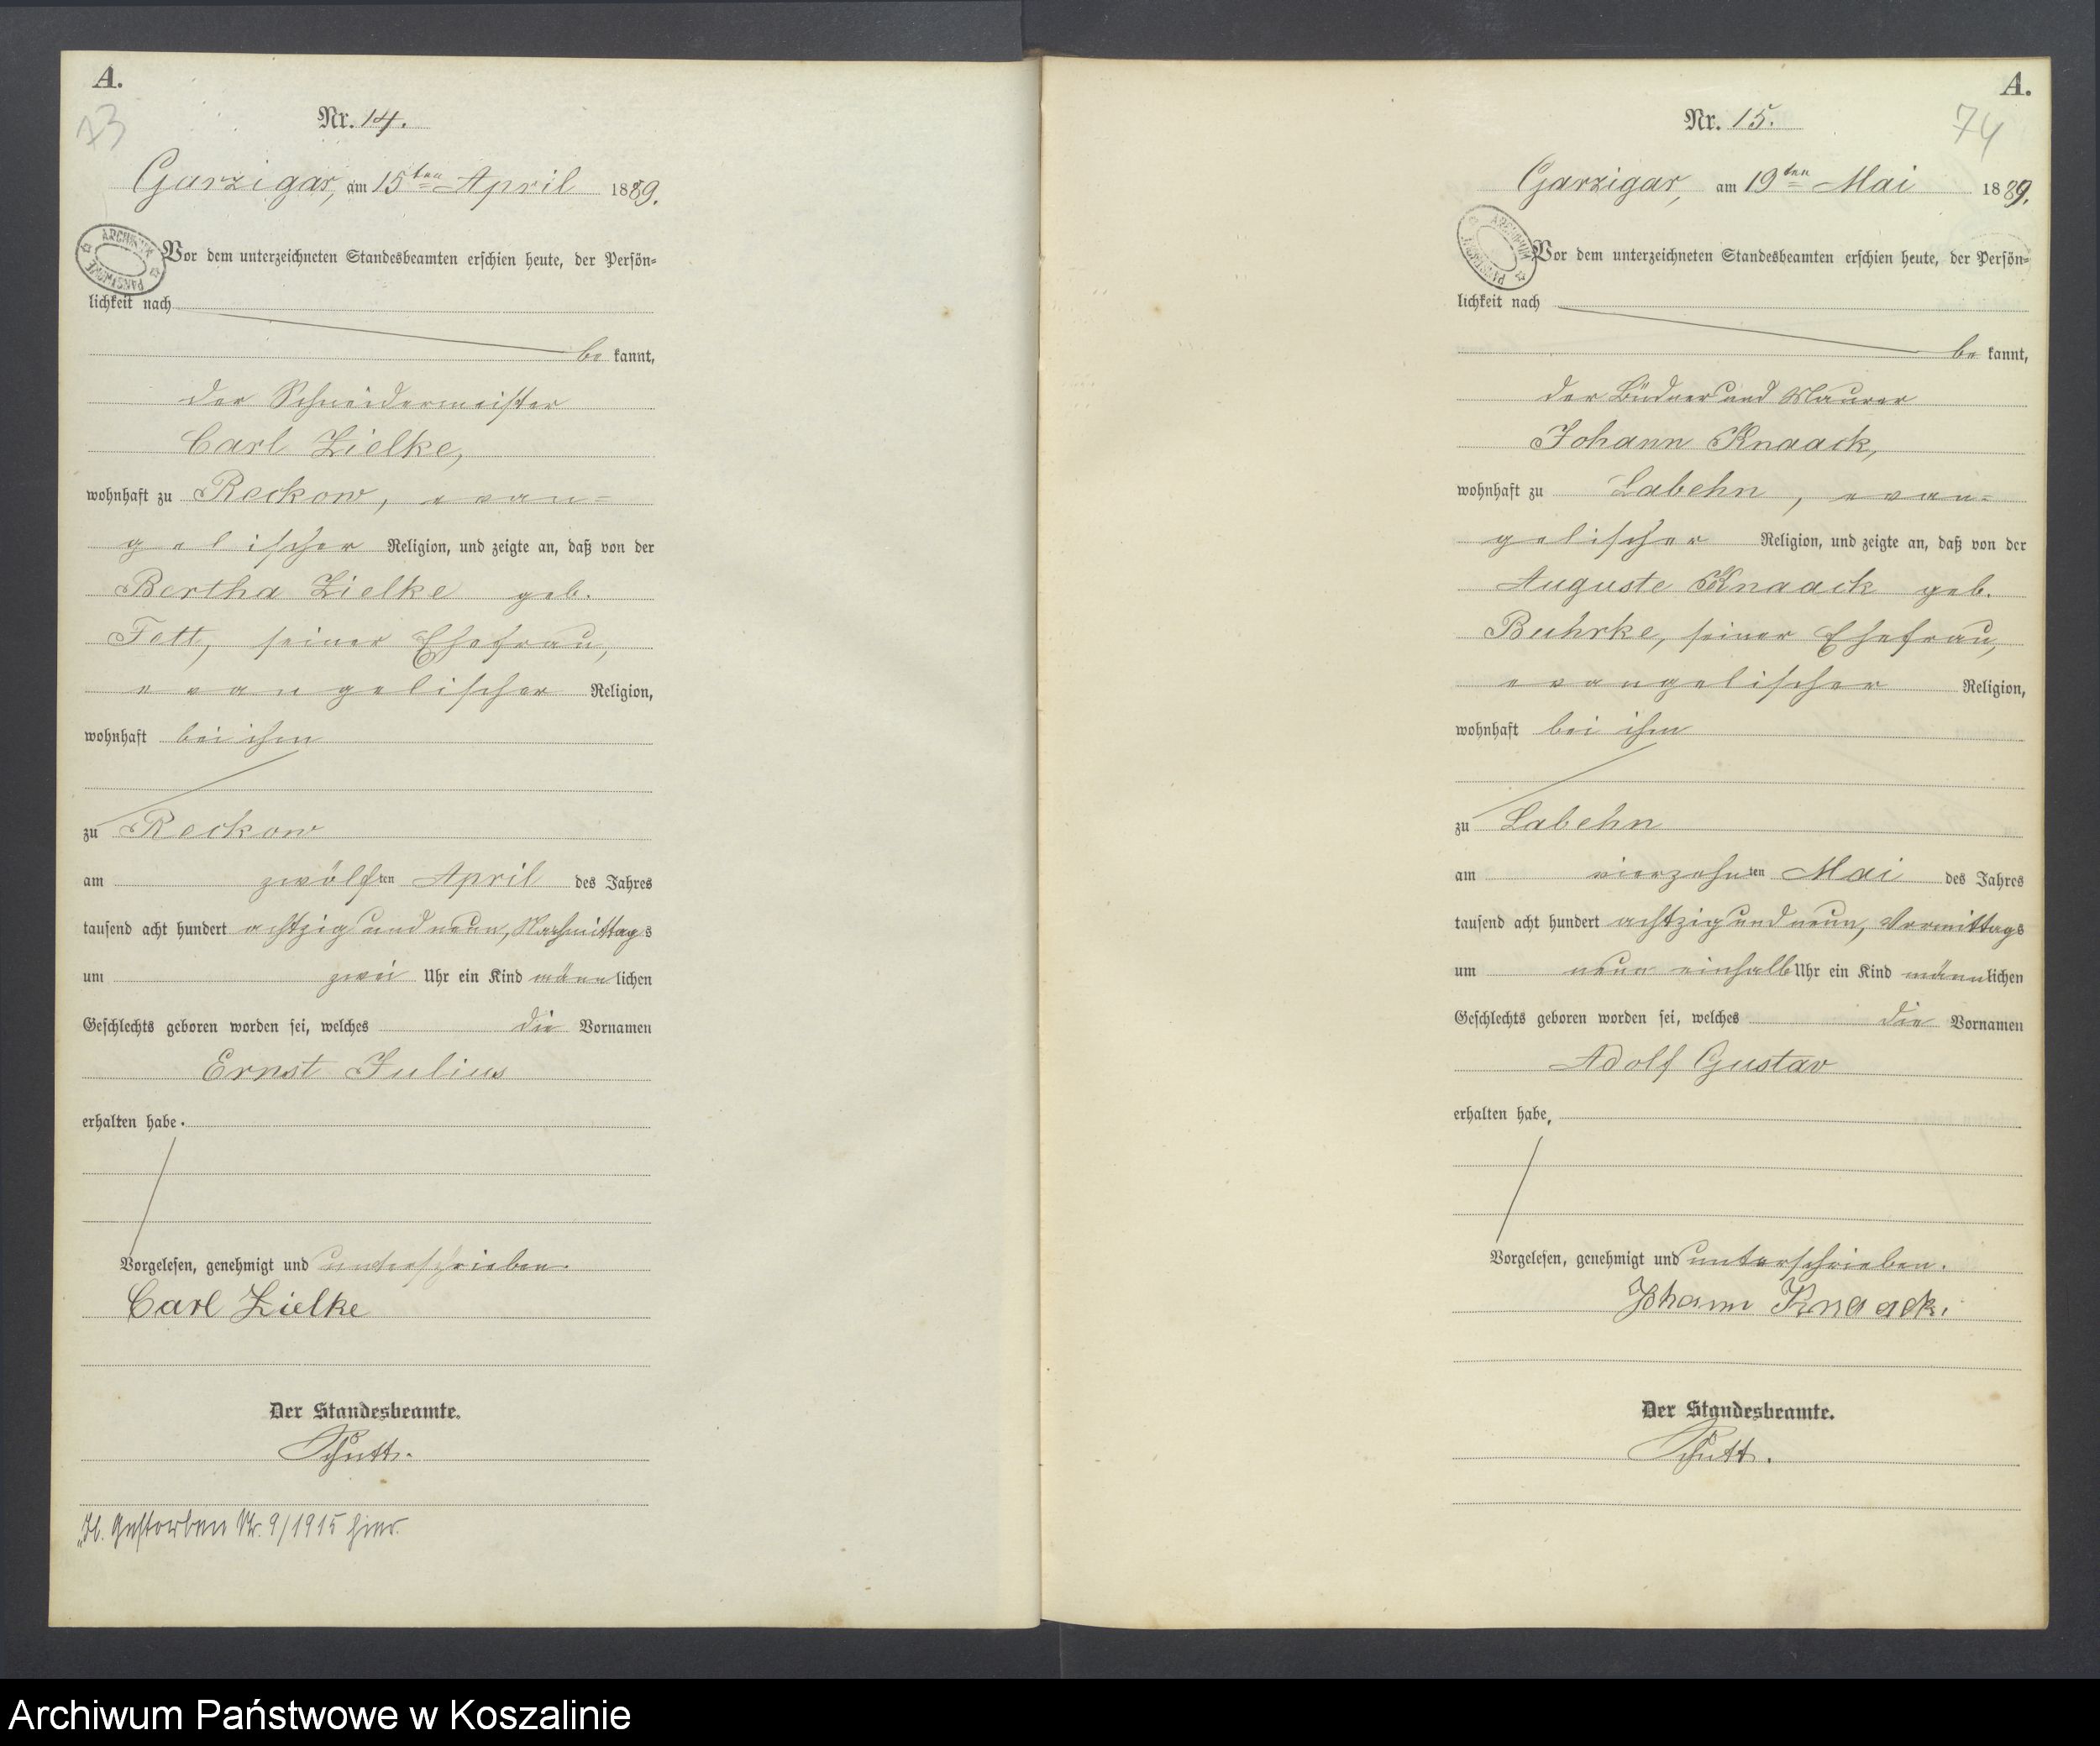 A.
73
Nr. 14.
Garzigar, am 15ten April 1889.
ARCHIWUM PAŃSTWOWE
Vor dem unterzeichneten Standesbeamten erschien heute, der Persön=
lichkeit nach
be kannt,
der Schneidermeister
Carl Zielke,
wohnhaft zu Reckow, evan=
gelischer Religion, und zeigte an, daß von der
Bertha Zielke geb.
Fett, seiner Ehefrau,
evangelischer Religion,
wohnhaft bei ihm
zu Reckow
am zwölften April des Jahres
tausend acht hundert achtzig und neun, Nachmittags
um zwei Uhr ein Kind männlichen
Geschlechts geboren worden sei, welches die Vornamen
Ernst Julius
erhalten habe.
Vorgelesen, genehmigt und unterschrieben.
Carl Zielke
Der Standesbeamte.
Schutt.
Gestorben Nr. 9/1915 hier.
A.
74
Nr. 15.
Garzigar, am 19ten Mai 1889.
ARCHIWUM PAŃSTWOWE
Vor dem unterzeichneten Standesbeamten erschien heute, der Persön=
lichkeit nach
be kannt,
der Büdner und Maurer
Johann Knaack,
wohnhaft zu Labehn, evan=
gelischer Religion, und zeigte an, daß von der
Auguste Knaack geb.
Buhrke, seiner Ehefrau,
evangelischer Religion,
wohnhaft bei ihm
zu Labehn
am vierzehnten Mai des Jahres
tausend acht hundert achtzig und neun, Vormittags
um neun einhalb Uhr ein Kind männlichen
Geschlechts geboren worden sei, welches die Vornamen
Adolf Gustav
erhalten habe.
Vorgelesen, genehmigt und unterschrieben.
Johann Knaack.
Der Standesbeamte.
Schutt.
Archiwum Państwowe w Koszalinie